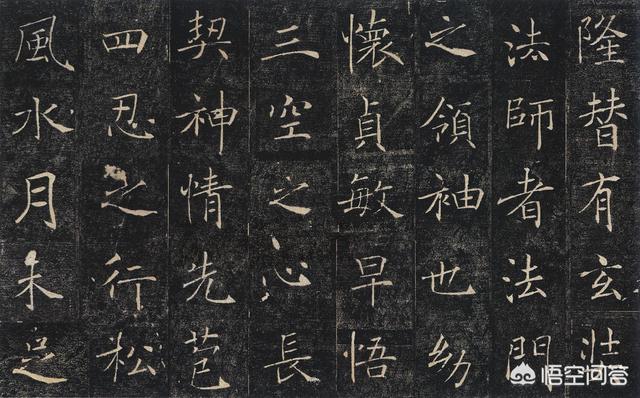 隆替有玄奘
法師者法門
之領袖也幼
懷貞敏早悟
三空之心長
契神情先苞
四忍之行松
風水月未足
悟空问答